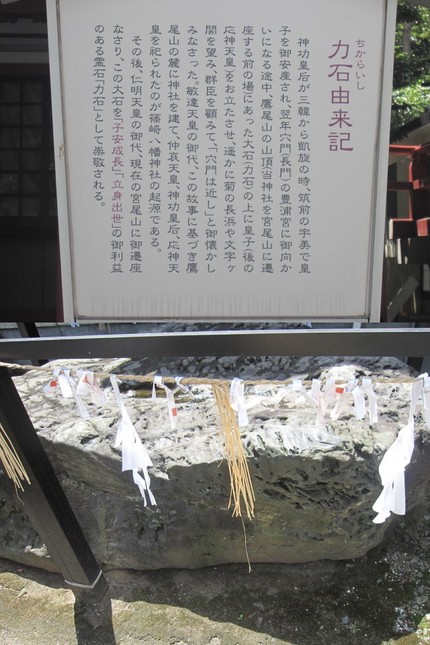 ちからいし
力石由来記
神功皇后が三韓から凱旋の時、筑前の宇美で皇
子を御安産され、翌年穴門(長門)の豊浦宮に御向か
いになる途中、鷹尾山の山頂(当神社を宮尾山に遷
座する前の場にあった大石(力石)の上に皇子(後の
応神天皇)をお立たせ、遥かに菊の長浜や文字ヶ
関を望み、群臣を顧みて、「穴門は近し」と御懐かし
みなさった。敏達天皇の御代、この故事に基づき鷹
尾山の麓に神社を建て、仲哀天皇、神功皇后、応神天
皇を祀られたのが篠崎八幡神社の起源である。
その後、仁明天皇の御代、現在の宮尾山に御遷座
なさり、この大石を「子安成長」、「立身出世」の御利益
のある霊石「力石」として崇敬される。